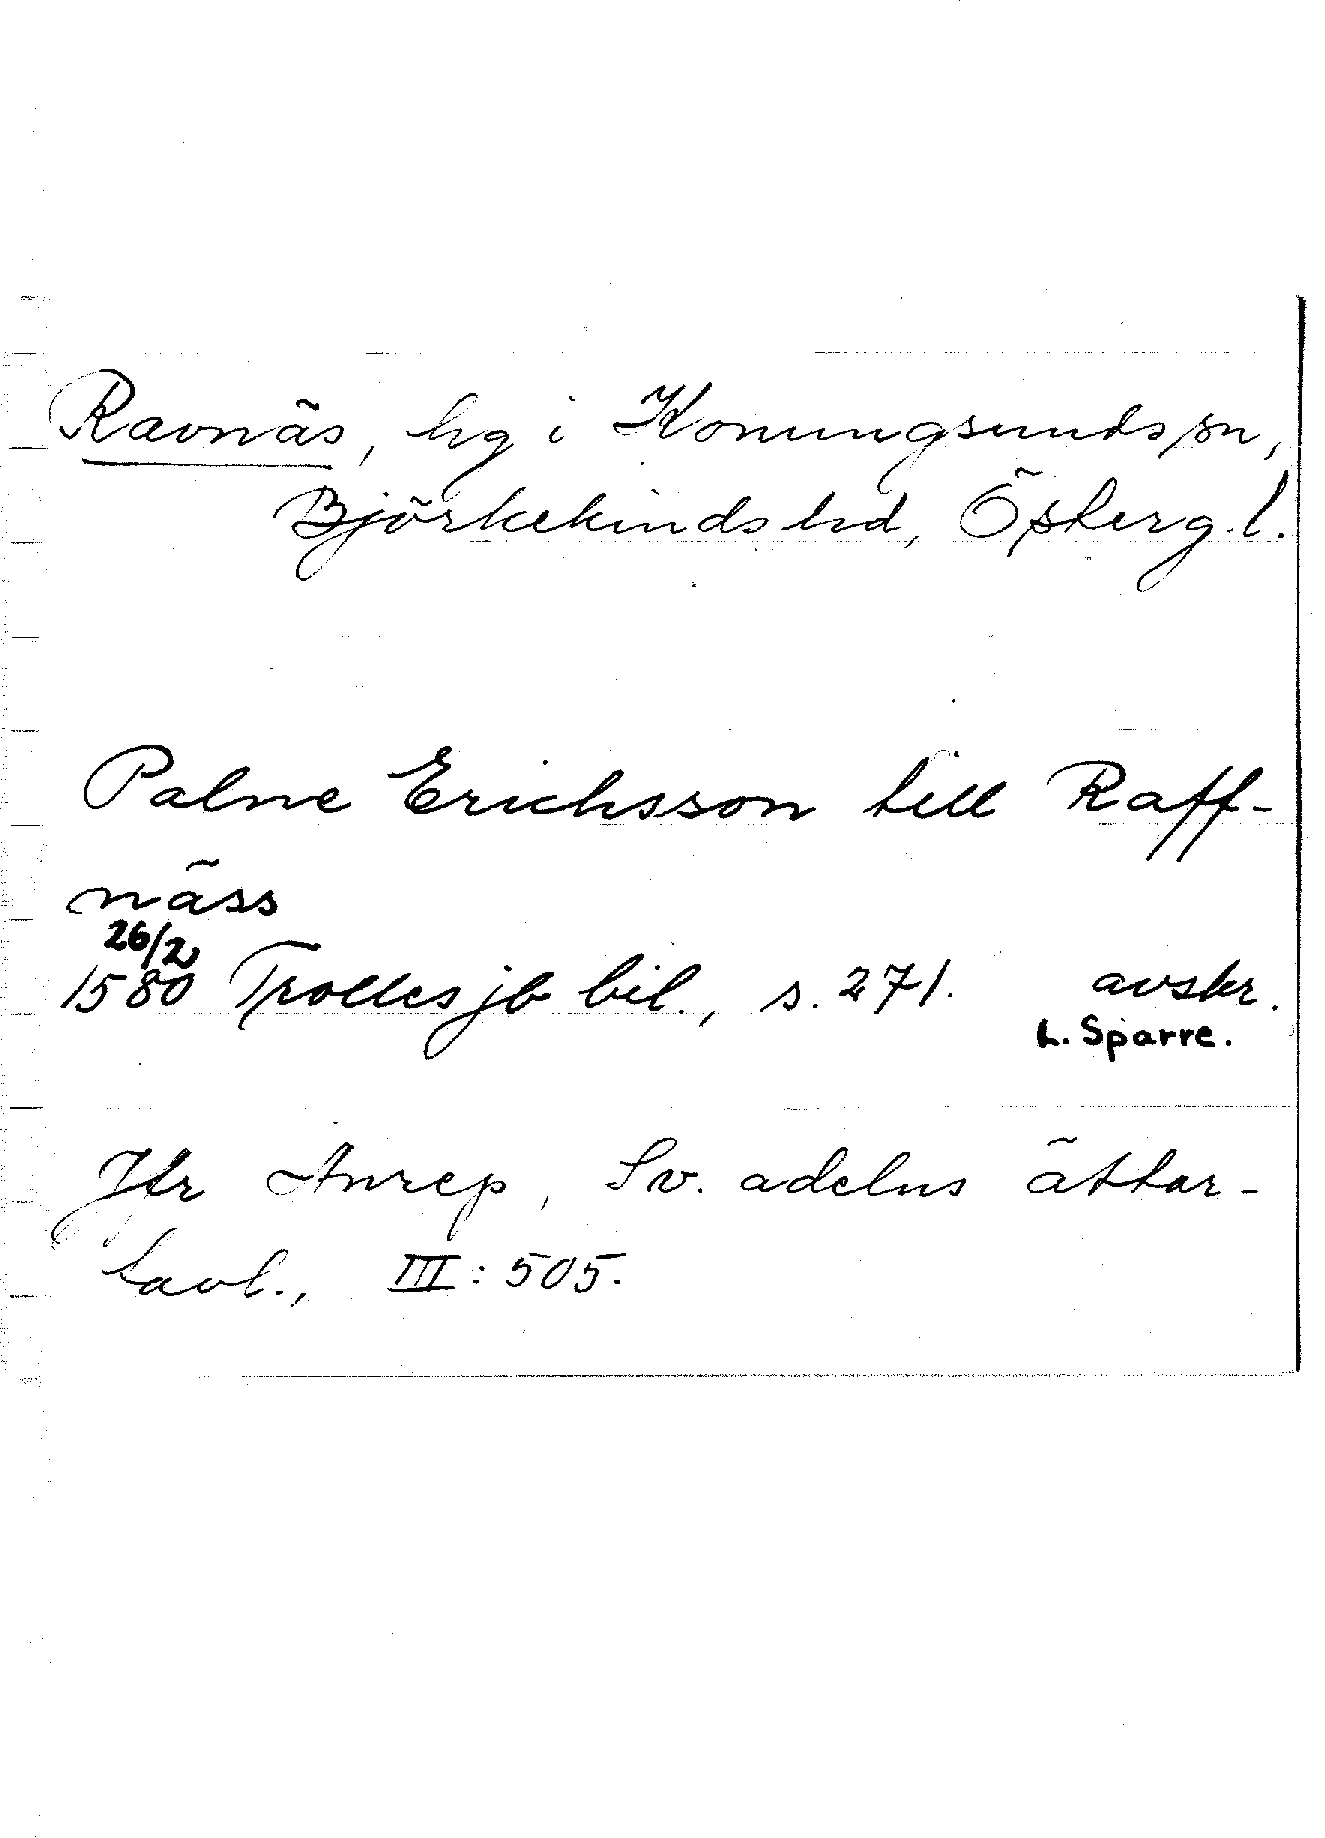 Ravnäs, hg i Konungsunds sn,
Björkekinds hd, Österg. l.
Palne Erichsson till Raff-
näss
26/2
1580 Trolles jb bil., s. 271. avskr.
L. Sparre.
Jfr Anrep, Sv. adelns ättar-
tavl., III: 505.